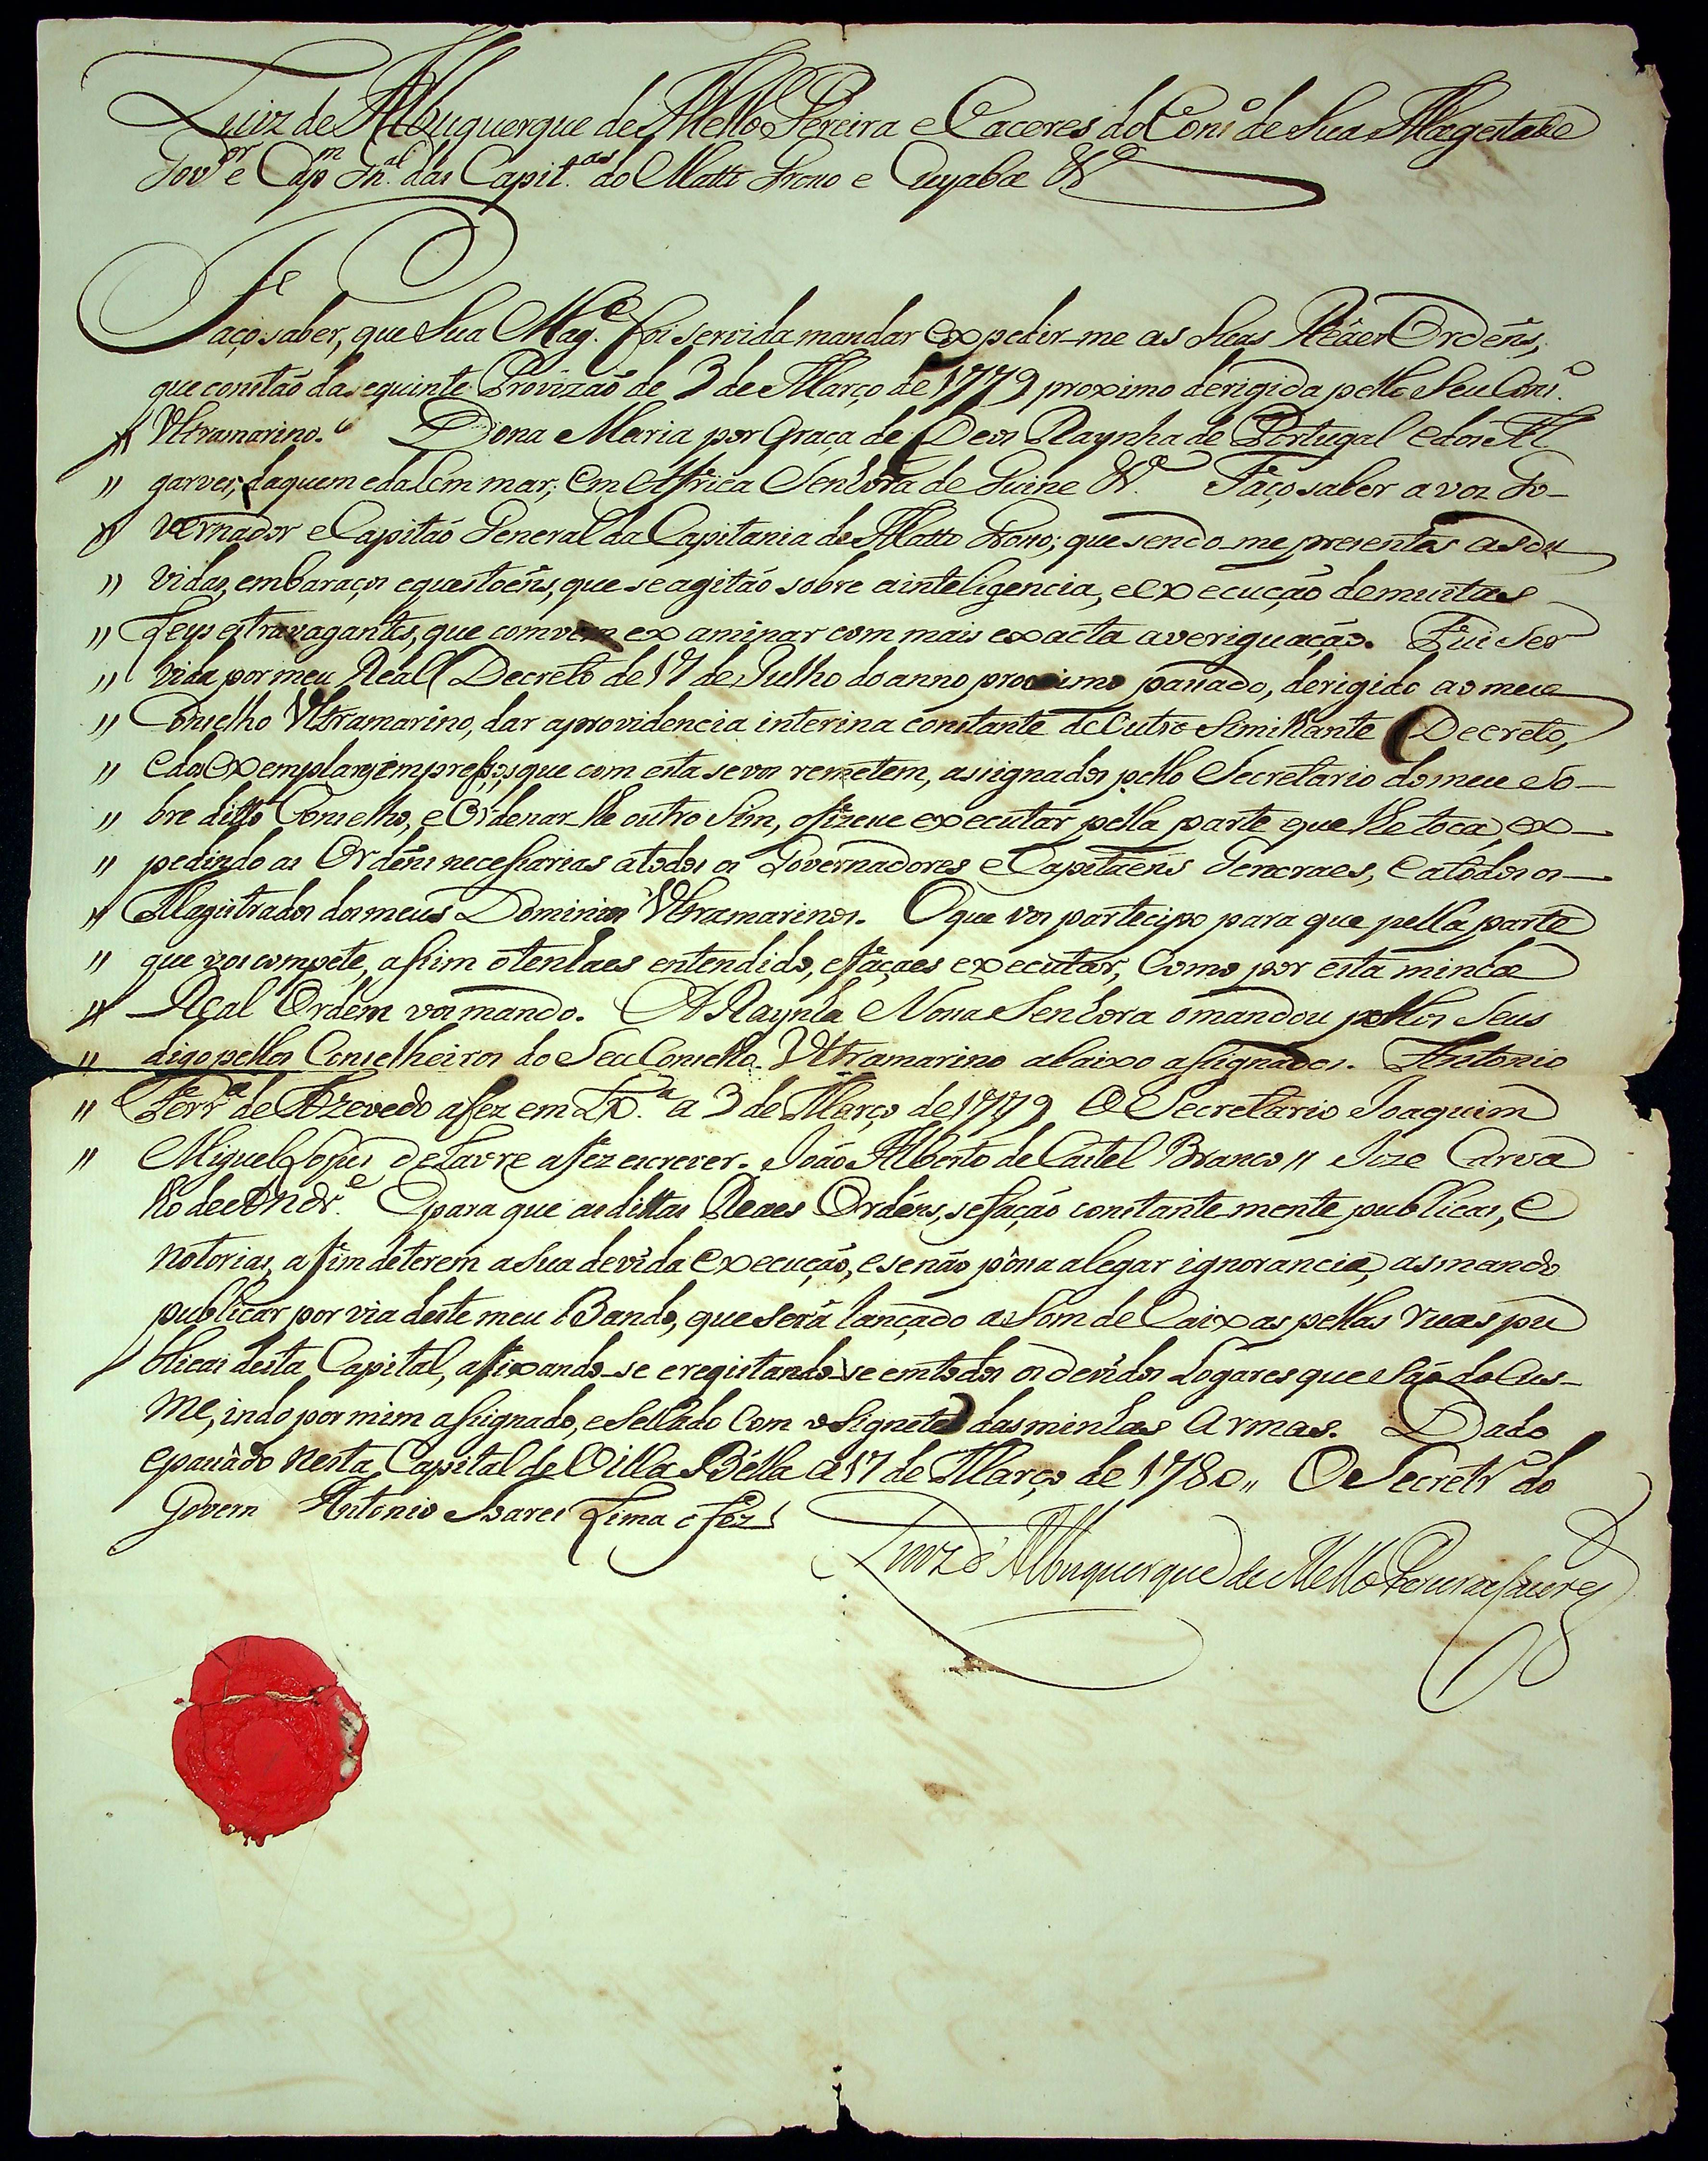 Luiz de Albuquerque de Mello Pereira e Caceres do Cons.º de Sua Magestade
Gov.or e Cap.m Gn.al das Capit.as do Matto Grosso e Cuyaba &.ª
Faço saber, que Sua Mag.e foi servida mandar expedir-me as Suas Reáes Ordeñs,
que constão da seguinte Provizaõ de 3 de Março de 1779 proximo dirigida pello Seu Cons.º
" Ultramarino. " Dona Maria por Graça de Deos Raynha de Portugal e dos Al
" garves, daquem e dalem mar, em Africa Senhora de Guine &.ª Faço saber a vos Go-
" vernador e Capitaõ General da Capitania do Matto Grosso; que sendo-me presentes as du
" vidas, embaraços e questoẽns, que se agitão sobre a inteligencia, e execução de muitas
" Leys estravagantes, que convem examinar com mais exacta averiguação. Fui Ser
" vida por meu Real Decreto de 17 de Julho do anno proximo passado, derigido ao meu
" Conselho Ultramarino, dar a providencia interina constante de outro Similhante Decreto,
" e dos exemplares impressos, que com esta se vos remetem, assignados pello Secretario do meu So-
" bre ditto Conselho, e Ordenar-lhe outro Sim, o fizece executar pella parte que lhe toca, ex-
" pedindo as Ordẽns necessarias a todos os Governadores e Capitaẽns Generaes, e a todos os
" Magistrados dos meus Dominios Ultramarinos. O que vos participo para que pella parte
" que vos compete, assim o tenhaes entendido, e façaes executar, Como por esta minha
" Real Ordem vos mando. A Raynha Nossa Senhora o mandou pellos Seus
" digo pellos Conselheiros do Seu Conselho Ultramarino abaixo assignados. Antonio
" Ferr.ª de Azevedo a fez em Lx.ª a 3 de Março de 1779 O Secretario Joaquim
" Miguel Lopes de Lavre a fez escrever. João Alberto de Castel Branco // Joze Carva
lho de Andr.e E para que as dittas Reaes Ordẽns, se fação constantemente publicas, e
notorias, a fim de terem a Sua devida execução, e se não possa alegar ignorancia, as mando
publicar por via deste meu Bando, que Será lançado a Som de Caixas pellas ruas pu
blicas desta Capital, afixando-se e registando-se em todos os devidos Logares que São do Cos-
tume, indo por mim assignado, e Sellado com o Signete das minhas Armas. Dado
e passado nesta Capital de Villa Bella a 17 de Março de 1780 " O Secretr.º do
Govern Antonio Soares Lima o fez
Luiz d' Albuquerque de Mello Pereira e Caceres